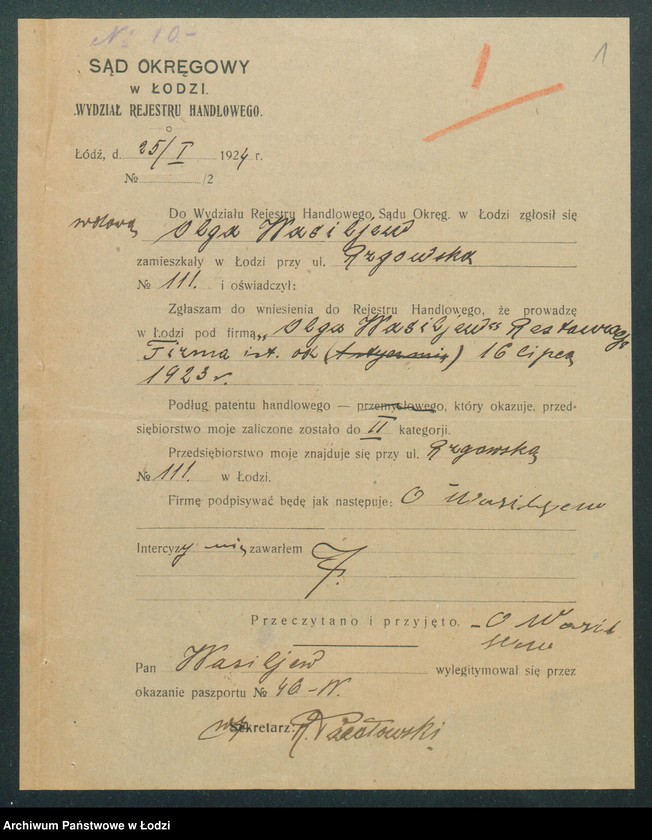 № 10.-
1
1
SĄD OKRĘGOWY
w ŁODZI.
WYDZIAŁ REJESTRU HANDLOWEGO.
Łódź, d. 25/I 1924 r.
№ /2
Do Wydziału Rejestru Handlowego Sądu Okręg. w Łodzi zgłosił się
wdowa Olga Wasiljew
zamieszkały w Łodzi przy ul. Rzgowska
№ 111. i oświadczył:
Zgłaszam do wniesienia do Rejestru Handlowego, że prowadzę
w Łodzi pod firmą „Olga Wasiljew"
Firma ist. od 16 lipca
1923 r.
Podług patentu handlowego — przemysłowego, który okazuje, przed-
siębiorstwo moje zaliczone zostało do II kategorji.
Przedsiębiorstwo moje znajduje się przy ul. Rzgowską
№ 111. w Łodzi.
Firmę podpisywać będę jak następuje: O Wasiljew
Intercyzy nie zawarłem
Przeczytano i przyjęto. – O Wasil
jew
Pan Wasiljew wylegitymował się przez
okazanie paszportu № 46-N.
Sekretarz:
Archiwum Państwowe w Łodzi